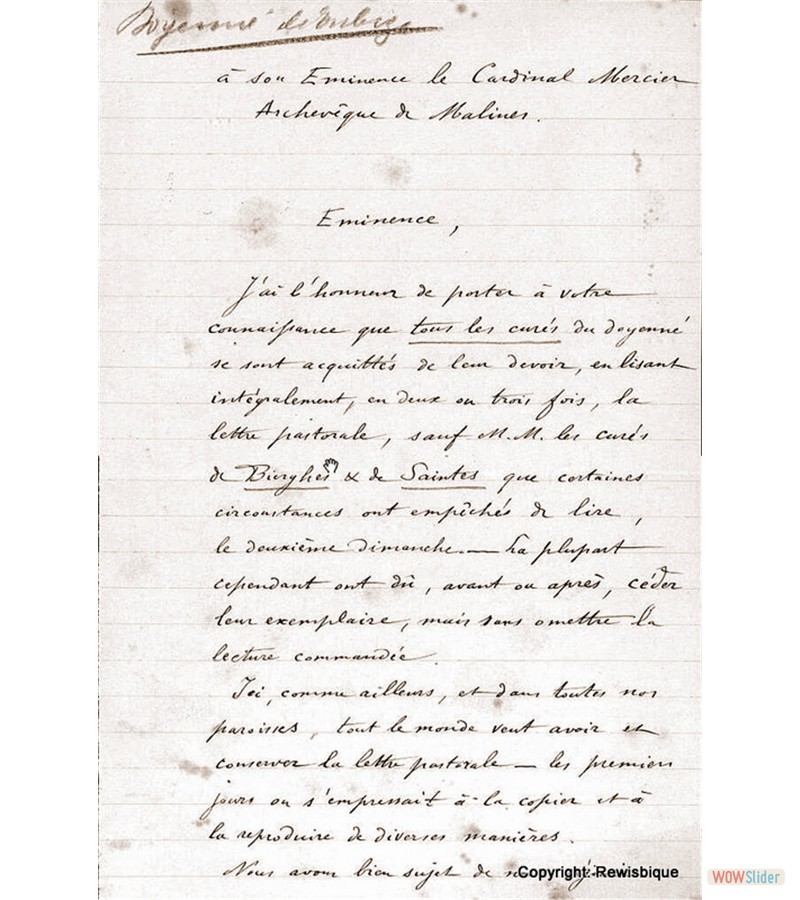 Doyenné de Tubize
à son Eminence le Cardinal Mercier
Archevêque de Malines.
Eminence,
J'ai l'honneur de porter à votre
connaissance que tous les curés du doyenné
se sont acquittés de leur devoir, en lisant
intégralement, en deux ou trois fois, la
lettre pastorale, sauf M.M. les curés
de Bierghes & de Saintes que certaines
circonstances ont empêchés de lire,
le deuxième dimanche. — La plupart
cependant ont dû, avant ou après, céder
leur exemplaire, mais sans omettre la
lecture commandée.
Ici, comme ailleurs, et dans toutes nos
paroisses, tout le monde veut avoir et
conserver la lettre pastorale — les premiers
jours on s'empressait à la copier et à
la reproduire de diverses manières.
Nous avons bien sujet de
Copyright: Rewisbique
WOWSlider